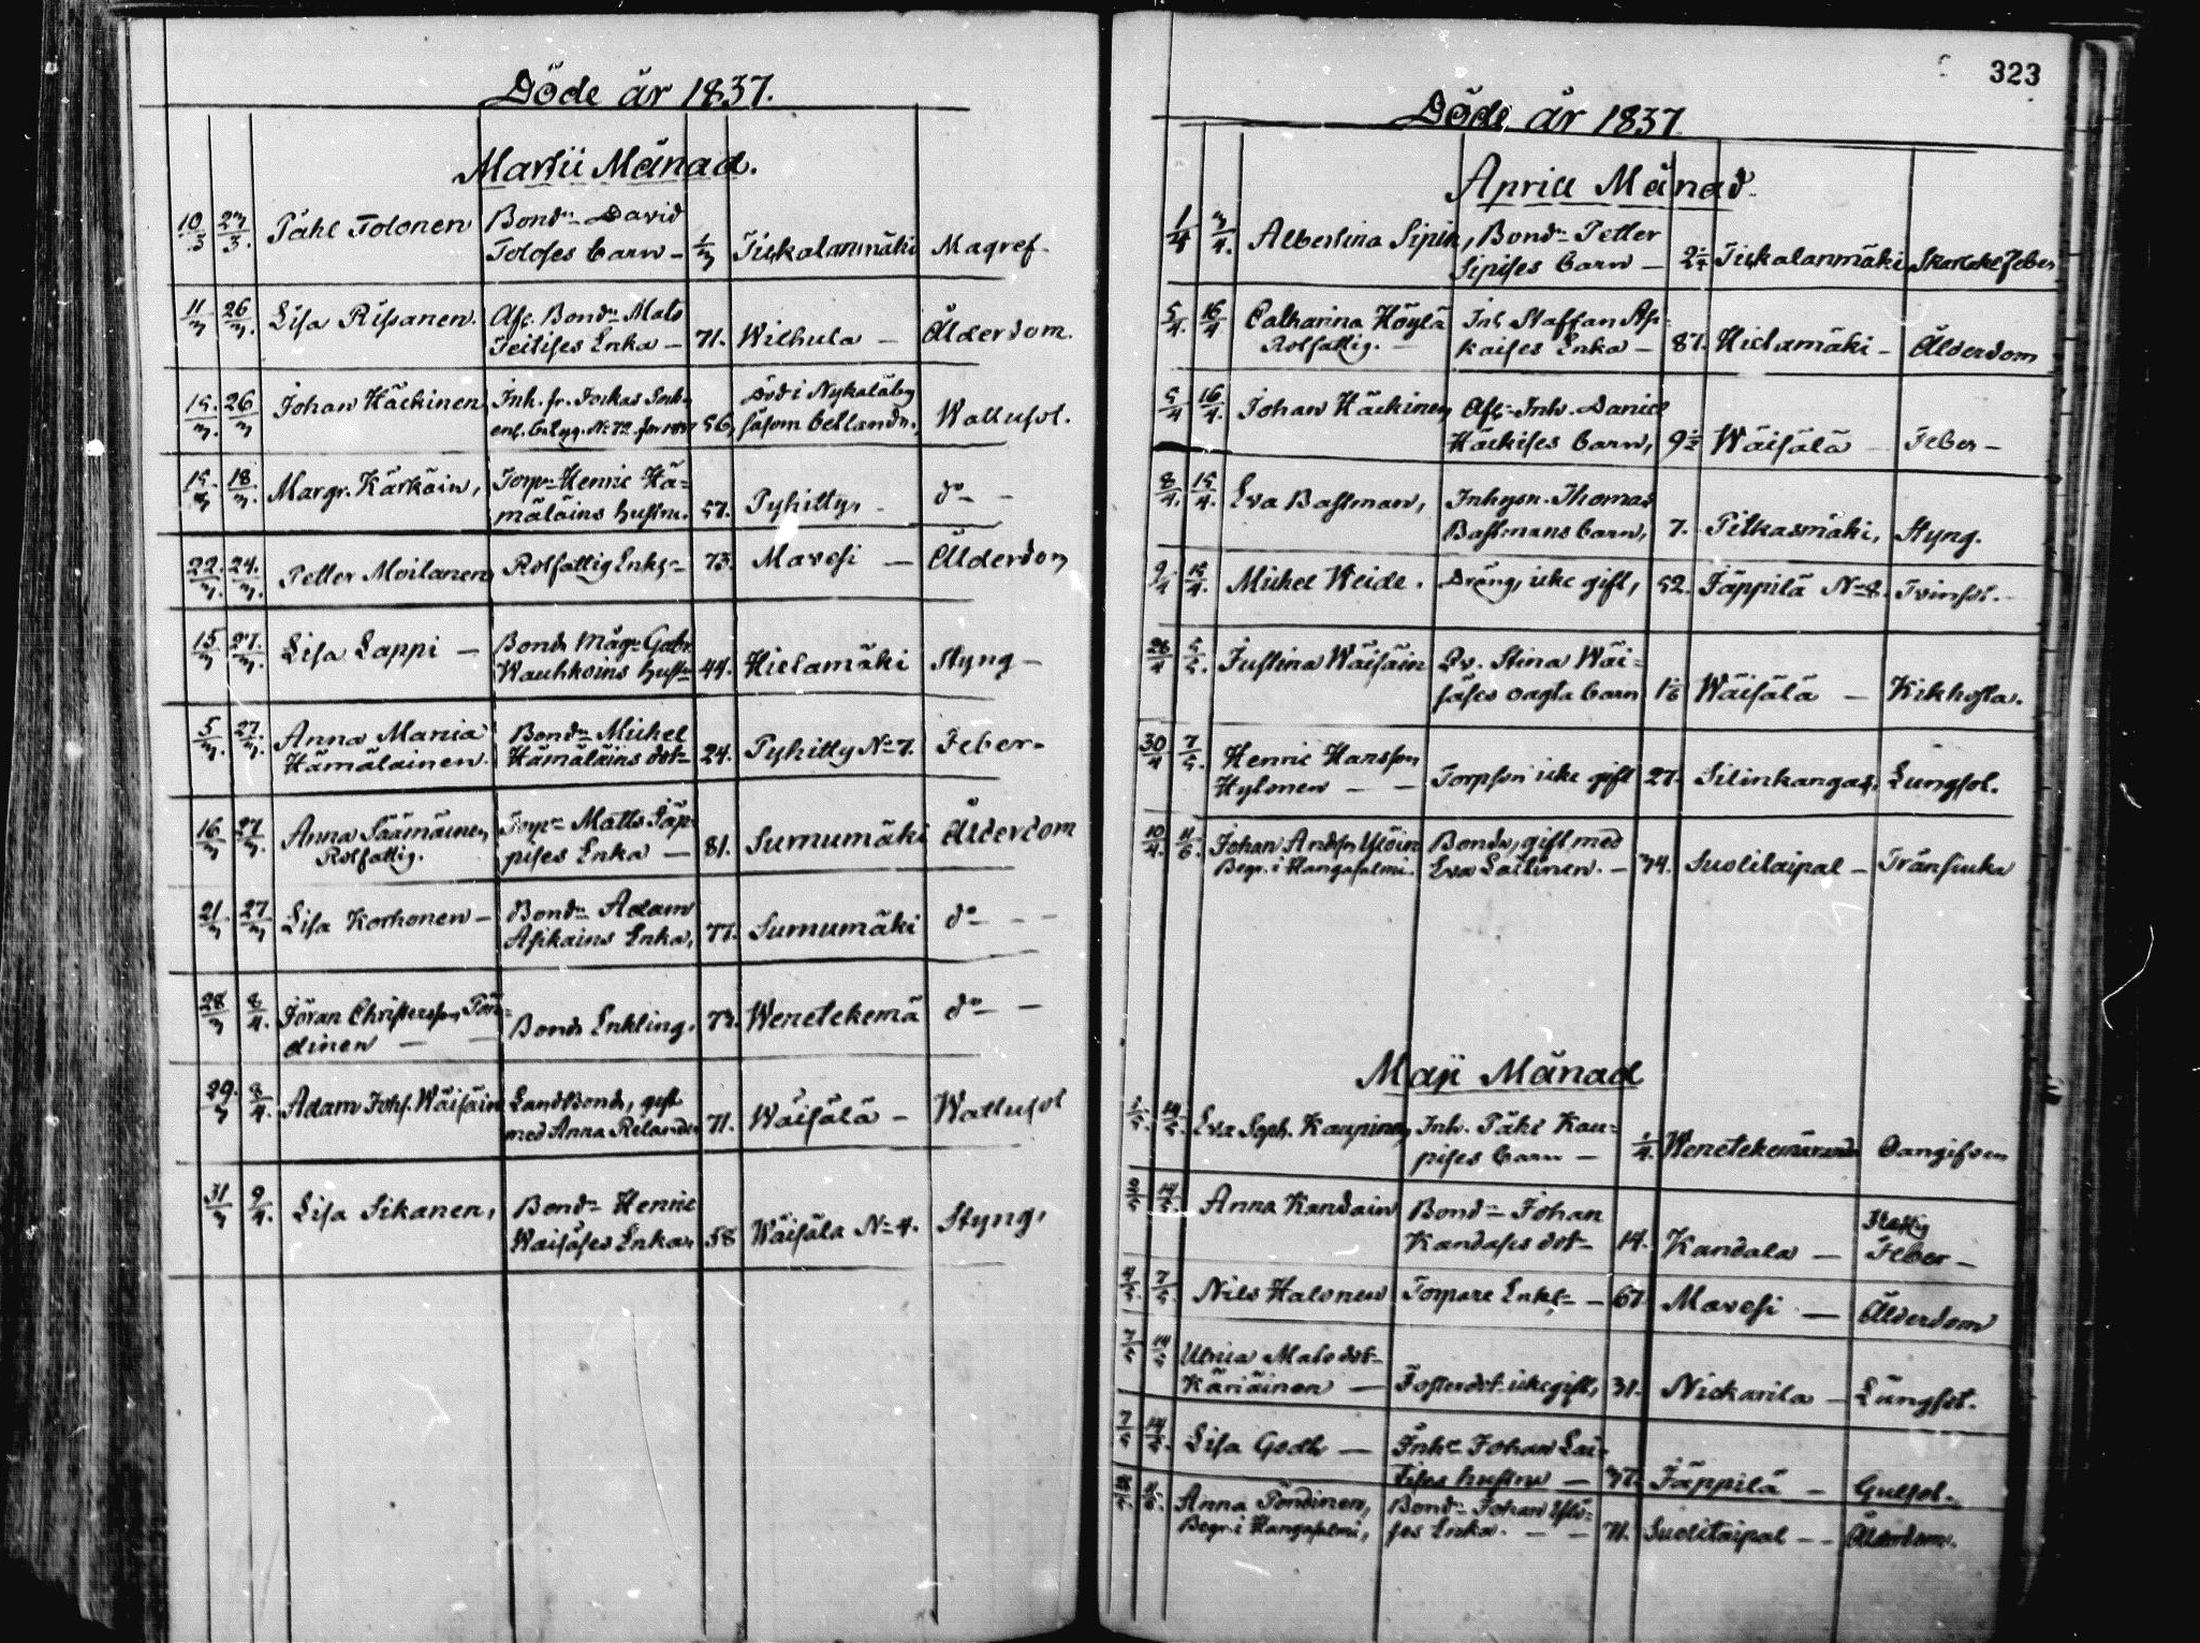 Döde år 1837.
Martii Månad.
10/3 27/3. Påhl Tolonen Bond:n David
Toloses barn – 1/3 Tiskalanmäki Magref.
11/3 26/3. Lisa Risanen. Afl. Bond:n Mats
Teitises Enka – 71. Wilhula – Ålderdom.
15/3. 26/3 Johan Häckinen Inh. fr. Jockas Sock-
enl. betyg. No 72. för 1837 56, Död i Nykaläby
såsom betlande. Wattusot.
15/3 18/3. Margr. Kärkäin, Torp:n Henric Hä=
mäläins hustru. 57. Pyhitty, d:o –
22/3. 24/3. Petter Moilanen Rotfattig Enkl:n 73. Mavesi – Ålderdom
15/3 27/3. Lisa Lappi – Bond. Måg:n Gabr.
Wauhkoins hustr. 44. Hietamäki Styng –
5/3. 27/3. Anna Maria
Hämälainen. Bond:n Michel
Hämäläins dot:r 24. Pyhitty No 7. Feber.
16/3 27/3. Anna Säämäinen,
Rotfattig. Torp:n Matts Jäp-
pises Enka – 81. Surnumäki Ålderdom
21/3. 27/3 Lisa Korhonen – Bond:n Adam
Asikains Enka, 77. Surnumäki d:o – –
28/3 8/4. Jöran Christersson Pön=
dinen – – Bond. Enkling. 73. Wenetekemä d:o – –
29/3. 8/4. Adam Johs. Wäisäin Landbond, gift
med Anna Relander 71. Wäisälä – Wattusot
31/3 9/4. Lisa Sikanen, Bond:n Henric
Waisäses Enka, 58 Wäisäla No 4. Styng,
323
Döde år 1837
April Månad.
1/4 3/4. Albertina Sipin, Bond:n Petter
Sipises barn – 2 1/4 Tiskalanmäki Skarlak. Feber
5/4. 16/4 Catharina Höylä
Rotfattig. – Inh. Staffan As-
kaises Enka – 87. Hietamäki – Ålderdom
5/4 16/4. Johan Häckinen, Afl:n Inh. Daniel
Häckises barn, 9 1/2 Wäisälä – Feber –
8/4. 15/4. Eva Bastman, Inhysn. Thomas
Bastmans barn, 7. Pitkasmäki, Styng.
9/4 15/4. Michel Weide. Dräng, icke gift, 52. Jäppilä No 8. Tvinsot. –
26/4 5/5. Justina Wäisäin Qv. Stina Wäi=
säses oägta barn 1 1/6 Wäisälä – Kikhosta.
30/4 7/5. Henric Hansson
Hylonen – – Torpson icke gift 27. Silinkangas, Lungsot.
10/4. 11/6. Johan Andsn Ylöin
Begr. i Hangasalmi. Bonde, gift med
Eva Laitinen. – 74. Suolitaipal – Trånsiuka
Maji Månad
1/5. 14/5. Eva Soph. Kaupinen, Inh. Påhl Kau=
pises barn – 1/4. Wenetekemä Oangifven
10/5 14/5. Anna Kandain Bond:n Johan
Kandases dot:r 14. Kandala – Feber –
4/5. 7/5. Nils Halonen Torpare Enkl:g – 67. Mavesi – Ålderdom
7/5 14/5 Ulrica Matsdot:r
Käriäinen – Fosterdot:r icke gift, 31. Nickarila – Lungsot.
7/5 14/5. Lisa Godh – Inh:e Johan Lai-
tises hustru – 37. Jäppilä – Gulsot.
11/6. Anna Pöndinen,
Begr. i Hangasalmi, Bond:n Johan Ylö=
ses Enka. – – 71. Suolitaipal – – Ålderdom.